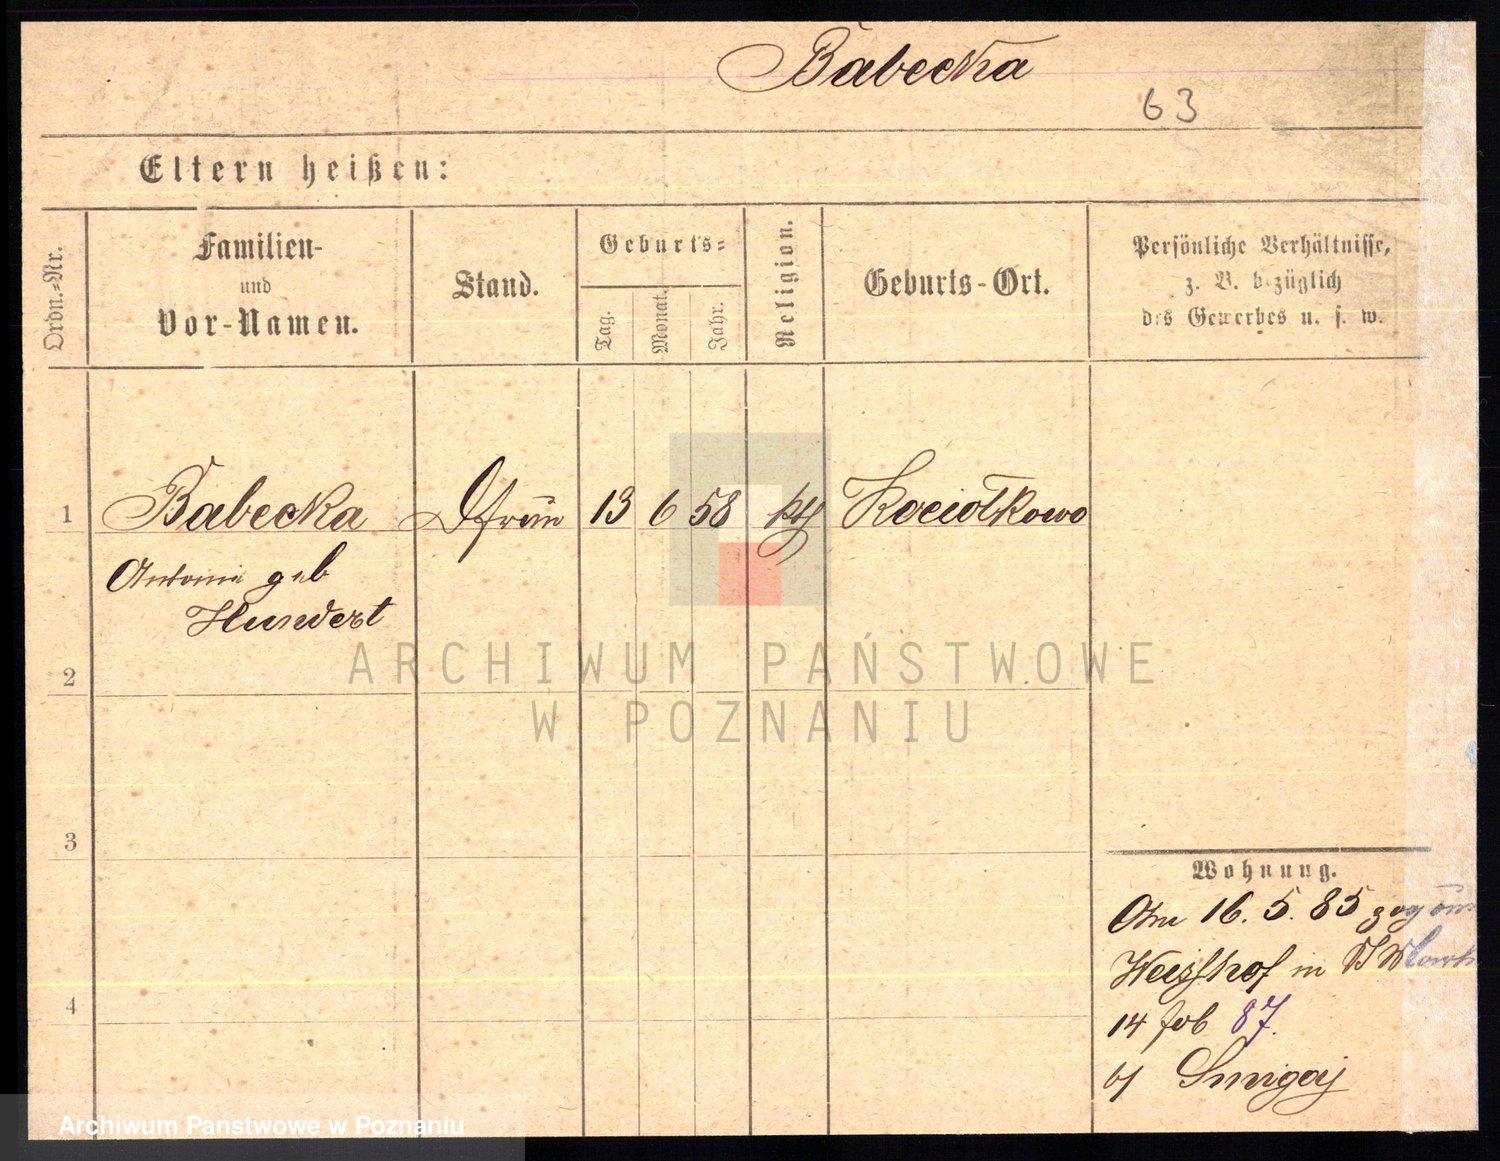 Babecka
63
Eltern heißen:
Ordn.-Nr.
Familien-
und
Vor-Namen.
Stand.
Geburts-
Tag.
Monat.
Jahr.
Religion.
Geburts-Ort.
Persönliche Verhältnisse,
z. B. bezüglich
des Gewerbes u. s. w.
1 Babecka 13 6 58 kth Kociołkowo
Antonie geb
Hundert
2
3
4
Wohnung.
Am 16. 5. 85 zog
in
14 feb 87.
Smigaj
ARCHIWUM PAŃSTWOWE
W POZNANIU
Archiwum Państwowe w Poznaniu